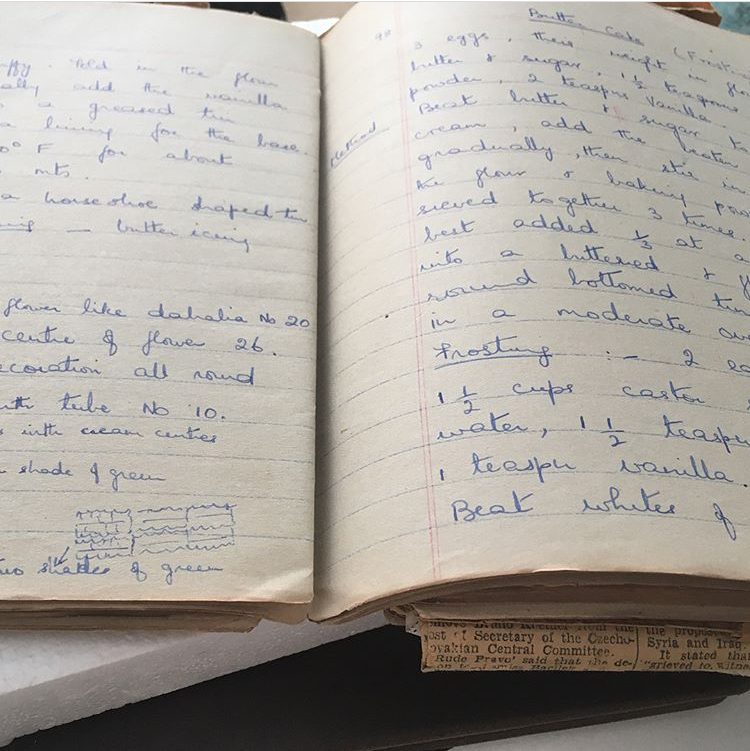 in the flour
add the vanilla
a greased tin
a lining for the base.
0° F for about
mts.
a horseshoe shaped tin
— butter icing
flower like dahalia No 20
centre of flower 26.
ecoration all round
tube No 10.
with cream centres
shade of green
two shades of green
98
Butter Cake
3 eggs, their weight in
butter & sugar, 1½ teaspoons
powder, 2 teaspns Vanilla.
Method
Beat butter & sugar to
cream, add the beaten
gradually, then stir in
the flour & baking pow
sieved together 3 times.
best added ⅓ at a
into a buttered &
round bottomed tin
in a moderate ov
Frosting :- 2
1½ cups castor
water, 1½ teaspn
1 teaspn vanilla.
Beat whites of
from the
ost of Secretary of the Czecho-
ovakian Central Committee.
'Rude Pravo' said that the de-
the propos
Syria and Iraq
It stated that
"grieved to witne